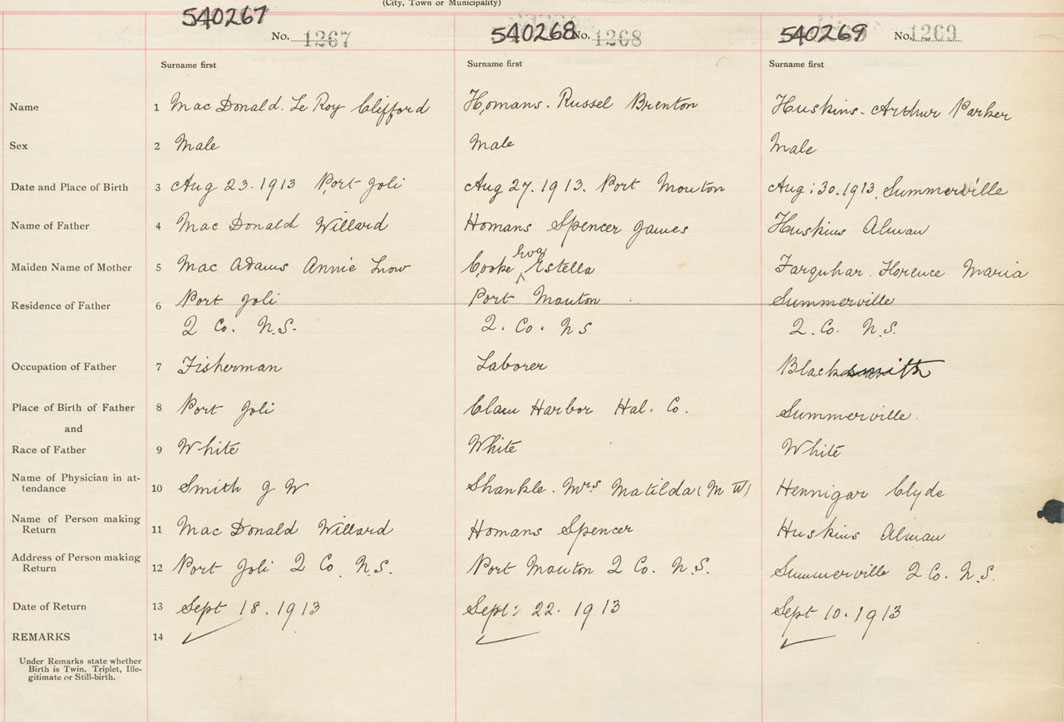 (City, Town or Municipality)
540267 No. 1267 540268 No. 1268 540269 No. 1269
Surname first Surname first Surname first
Name 1 Mac Donald. Le Roy Clifford Homans. Russel Brenton Huskins. Arthur Parker
Sex 2 Male Male Male
Date and Place of Birth 3 Aug 23. 1913 Port Joli Aug 27. 1913. Port Mouton Aug: 30. 1913. Summerville
Name of Father 4 Mac Donald Willard Homans Spencer James Huskins Alman
Maiden Name of Mother 5 Mac Adams Annie Snow Cooke Eva Estella Farquhar. Florence Maria
Residence of Father 6 Port Joli Port Mouton Summerville
Q Co. N.S. Q. Co. N S Q. Co. N.S.
Occupation of Father 7 Fisherman Laborer Blacksmith
Place of Birth of Father 8 Port Joli Clam Harbor Hal. Co. Summerville
and
Race of Father 9 White White White
Name of Physician in at-
tendance 10 Smith J W Shankle. Mrs Matilda (M W) Hennigar Clyde
Name of Person making
Return 11 Mac Donald Willard Homans Spencer Huskins Alman
Address of Person making
Return 12 Port Joli Q Co. N.S. Port Mouton Q Co. N.S. Summerville Q Co. N.S.
Date of Return 13 Sept 18. 1913 Sept: 22. 1913 Sept 10. 1913
REMARKS 14
Under Remarks state whether
Birth is Twin, Triplet, Ille-
gitimate or Still-birth.